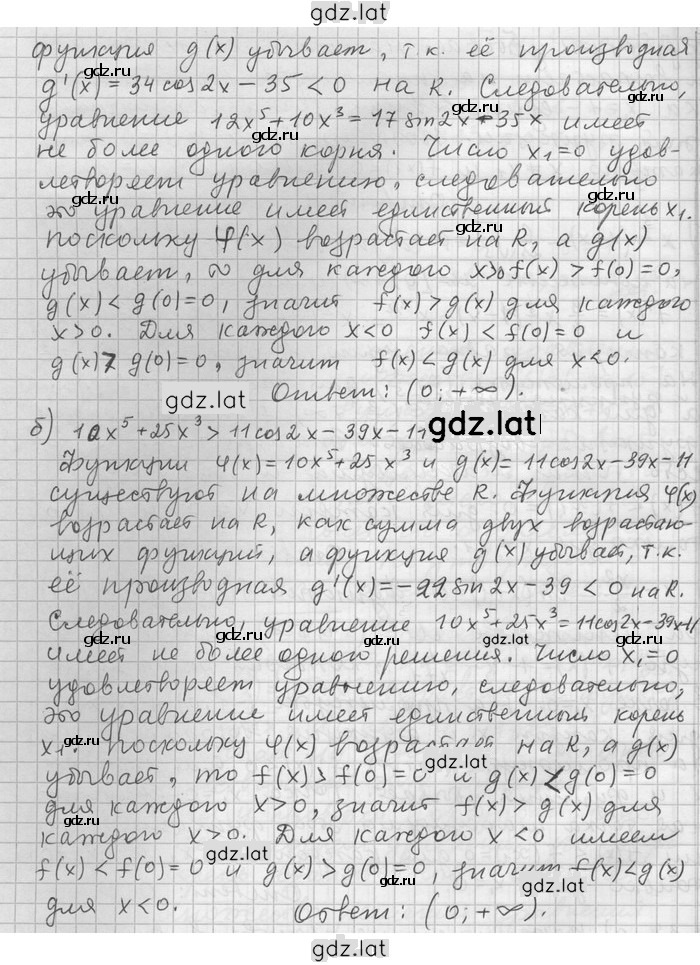 gdz.lat
функция g(x) убывает, т.к. её производная
g'(x) = 34cos2x - 35 < 0 на R. Следовательно,
gdz.lat
уравнение 12x⁵ + 10x³ = 17sin2x - 35x имеет
не более одного корня. Число x₁=0 удов-
летворяет уравнению, следовательно
это уравнение имеет единственный корень x₁.
поскольку φ(x) возрастает на R, а g(x)
gdz.lat
убывает, то для каждого x>0 f(x) > f(0) = 0,
g(x) < g(0) = 0, значит f(x) > g(x) для каждого
gdz.lat
x>0. Для каждого x<0 f(x) < f(0) = 0 и
g(x) > g(0) = 0, значит f(x) < g(x) для x<0.
gdz.lat
Ответ: (0; +∞).
б) 10x⁵ + 25x³ > 11cos2x - 39x - 11
gdz.lat
Функции φ(x) = 10x⁵ + 25x³ и g(x) = 11cos2x - 39x - 11
существуют на множестве R. Функция φ(x)
возрастает на R, как сумма двух возрастаю-
gdz.lat
щих функций, а функция g(x) убывает, т.к.
её производная g'(x) = -22sin2x - 39 < 0 на R.
gdz.lat
Следовательно, уравнение 10x⁵ + 25x³ = 11cos2x - 39x - 11
имеет не более одного решения. Число x₁=0
удовлетворяет уравнению, следовательно,
это уравнение имеет единственный корень
x₁. поскольку φ(x) возрастает на R, а g(x)
gdz.lat
убывает, то f(x) > f(0) = 0 и g(x) < g(0) = 0
для каждого x>0, значит f(x) > g(x) для
каждого x>0. Для каждого x<0 имеем
gdz.lat
f(x) < f(0) = 0 и g(x) > g(0) = 0, значит f(x) < g(x)
gdz.lat
для x<0. Ответ: (0; +∞).
gdz.lat